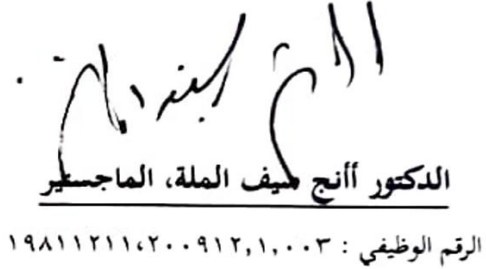 الدكتور أأنج سيف الملة، الماجستير
الرقم الوظيفي : ١٩٨١١٢١١،٢٠٠٩١٢,١,٠٠٣